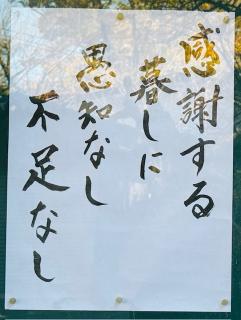 感謝する
暮しに
愚知なし
不足なし